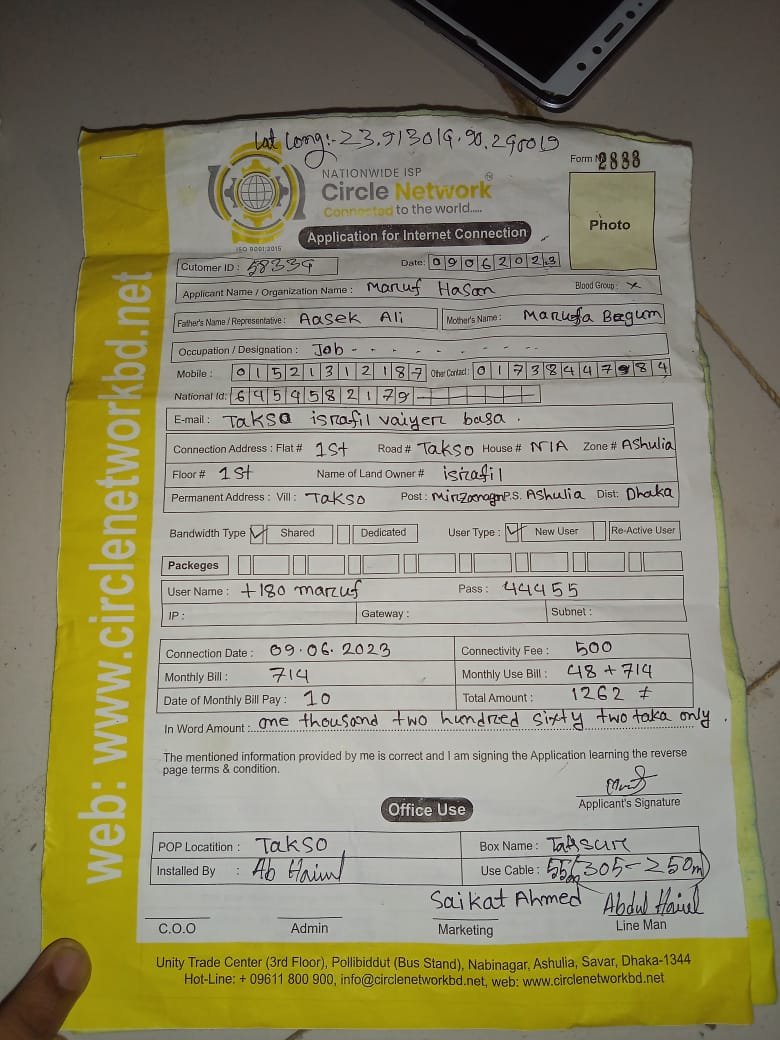 Lat Long:- 23.913019.90.290019
Form No 2838
NATIONWIDE ISP
Circle Network
Connected to the world.....
ISO 9001:2015
Photo
Application for Internet Connection
Cutomer ID : 58339
Date: 09062023
Applicant Name / Organization Name : Maruf Hasan Blood Group : x
Father's Name / Representative : Aasek Ali Mother's Name : Marufa Begum
Occupation / Designation : Job - - - - - - -
Mobile : 01521312187 Other Contact : 01738447984
National Id: 64594582179
E-mail : Takso israfil vaiyer basa .
Connection Address : Flat # 1st Road # Takso House # N/A Zone # Ashulia
Floor # 1st Name of Land Owner # israfil
Permanent Address : Vill : Takso Post : P.S. Ashulia Dist: Dhaka
Bandwidth Type Shared Dedicated User Type : New User Re-Active User
Packeges
User Name : +180 maruf Pass : 44455
IP : Gateway : Subnet :
Connection Date : 09.06.2023 Connectivity Fee : 500
Monthly Bill : 714 Monthly Use Bill : 48 + 714
Date of Monthly Bill Pay : 10 Total Amount : 1262
In Word Amount : one thousand two hundred sixty two taka only .
The mentioned information provided by me is correct and I am signing the Application learning the reverse
page terms & condition.
Applicant's Signature
Office Use
POP Locatition : Takso Box Name :
Installed By : Ab Use Cable : 305-250m
Saikat Ahmed Abdul
C.O.O Admin Marketing Line Man
Unity Trade Center (3rd Floor), Pollibiddut (Bus Stand), Nabinagar, Ashulia, Savar, Dhaka-1344
Hot-Line: + 09611 800 900, info@circlenetworkbd.net, web: www.circlenetworkbd.net
web: www.circlenetworkbd.net